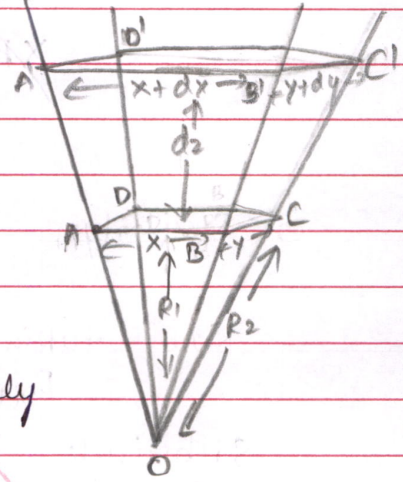 D'
A' x + dx B' y + dy C'
dz
D B C
A x B y
R1
R2
ly
O